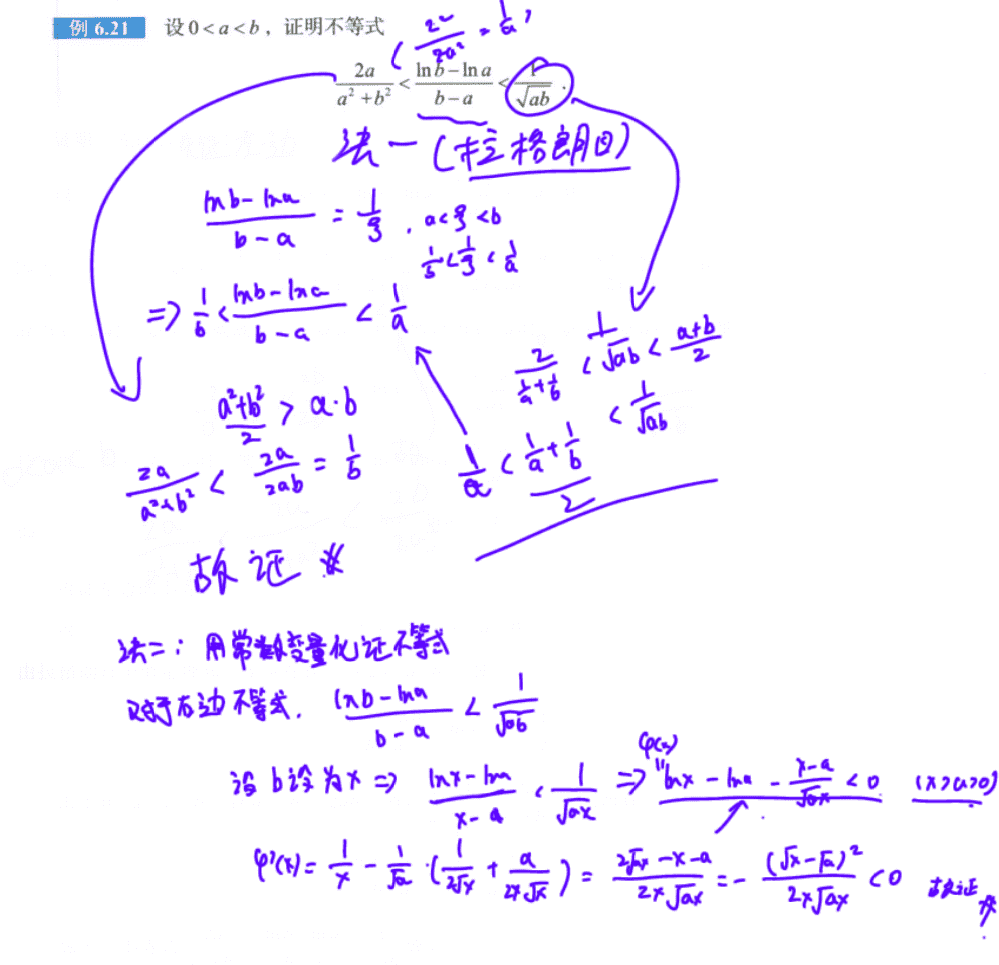 例 6.21 设 0<a<b，证明不等式
( 2a/2a² = 1/a )
2a/(a²+b²) < (ln b−ln a)/(b−a) < 1/√ab .
法一 (拉格朗日)
(lnb−lna)/(b−a) = 1/ξ , a<ξ<b
1/b<1/ξ<1/a
=> 1/b < (lnb−lna)/(b−a) < 1/a
2/(1/a+1/b) < 1/√ab < (a+b)/2
(a²+b²)/2 > a·b
< 1/√ab
2a/(a²+b²) < 2a/2ab = 1/b
1/a < (1/a+1/b)/2
故证 ※
法二：用常数变量化证不等式
对于右边不等式. (lnb−lna)/(b−a) < 1/√ab
φ(x)
设 b设为x => (lnx−lna)/(x−a) < 1/√ax => "lnx−lna−(x−a)/√ax <0 (x>a>0)
φ'(x)= 1/x − 1/√a ·(1/2√x + a/2x√x) = (2√ax−x−a)/2x√ax = − (√x−√a)²/2x√ax <0 故证 ※